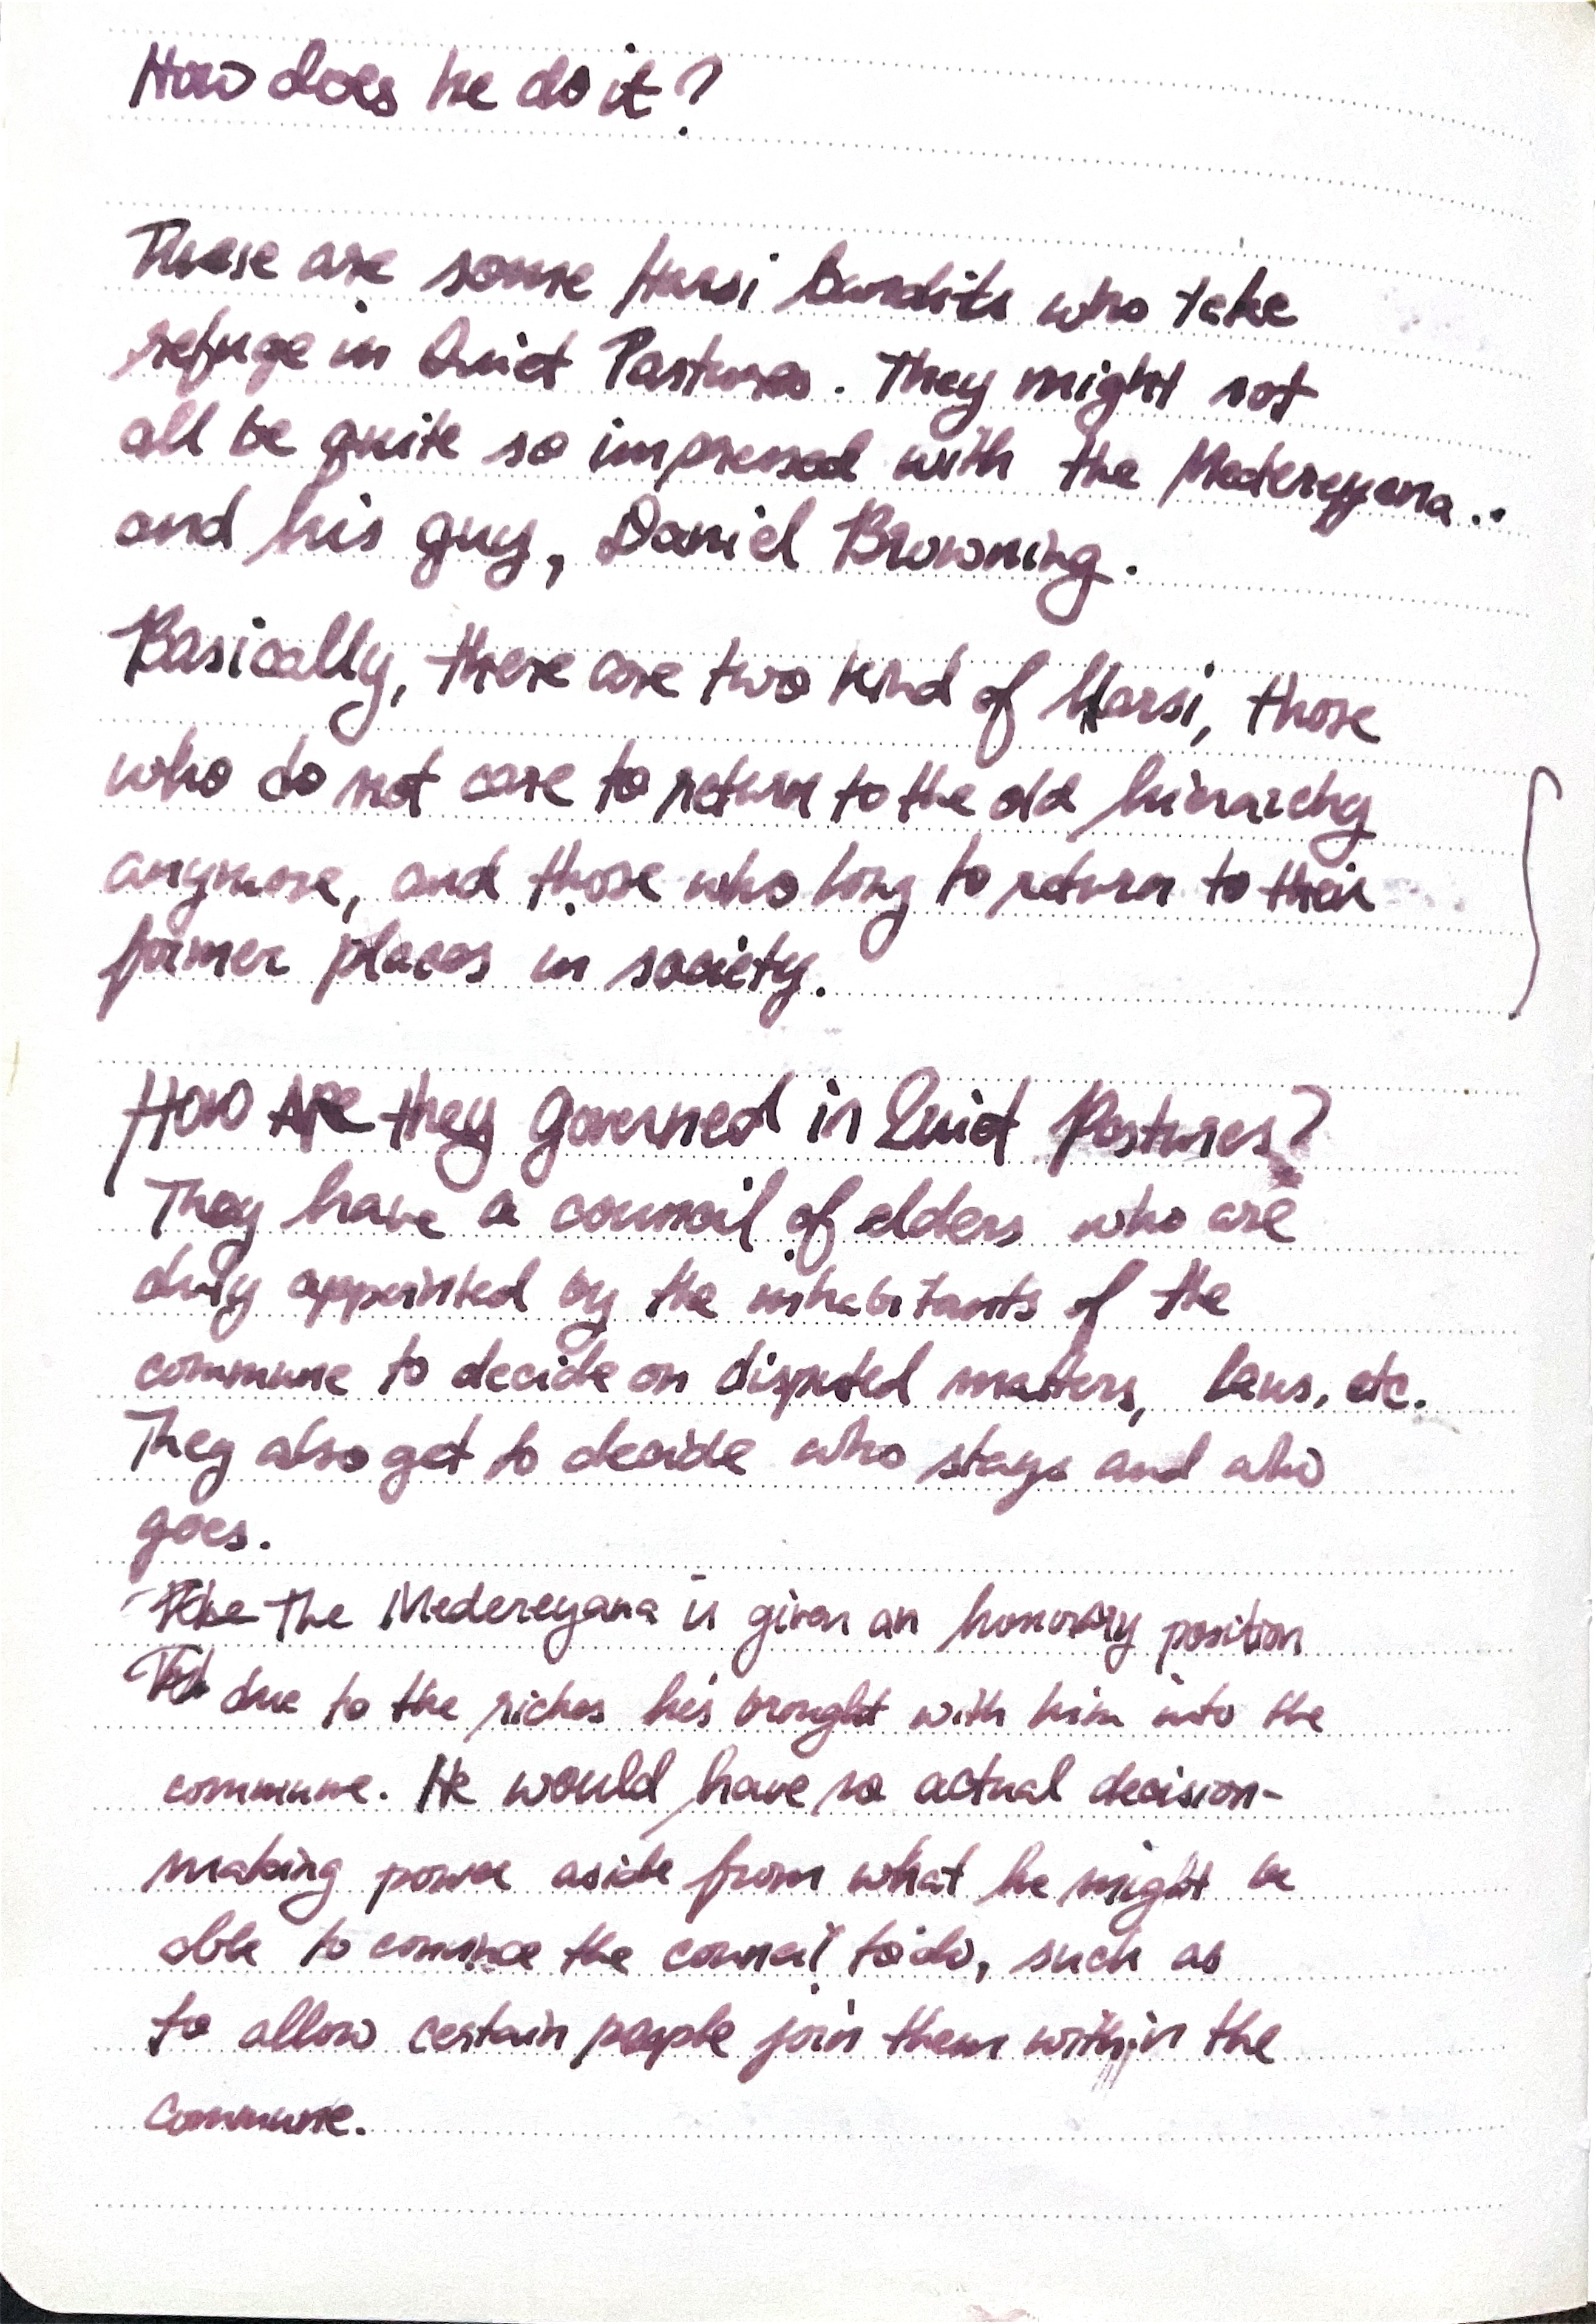 How does he do it?
These are some Harsi bandits who take
refuge in Quiet Pastures. They might not
all be quite so impressed with the Medereyana..
and his guy, Daniel Browning.
Basically, there are two kind of Harsi, those
who do not care to return to the old hierarchy
anymore, and those who long to return to their
former places in society.
How Are they governed in Quiet Pastures?
They have a council of elders who are
duly appointed by the inhabitants of the
commune to decide on disputed matters, laws, etc.
They also get to decide who stays and who
goes.
The Medereyana is given an honorary position
due to the riches he's brought with him into the
commune. He would have no actual decision-
making power aside from what he might be
able to convince the council to do, such as
to allow certain people join them within the
commune.